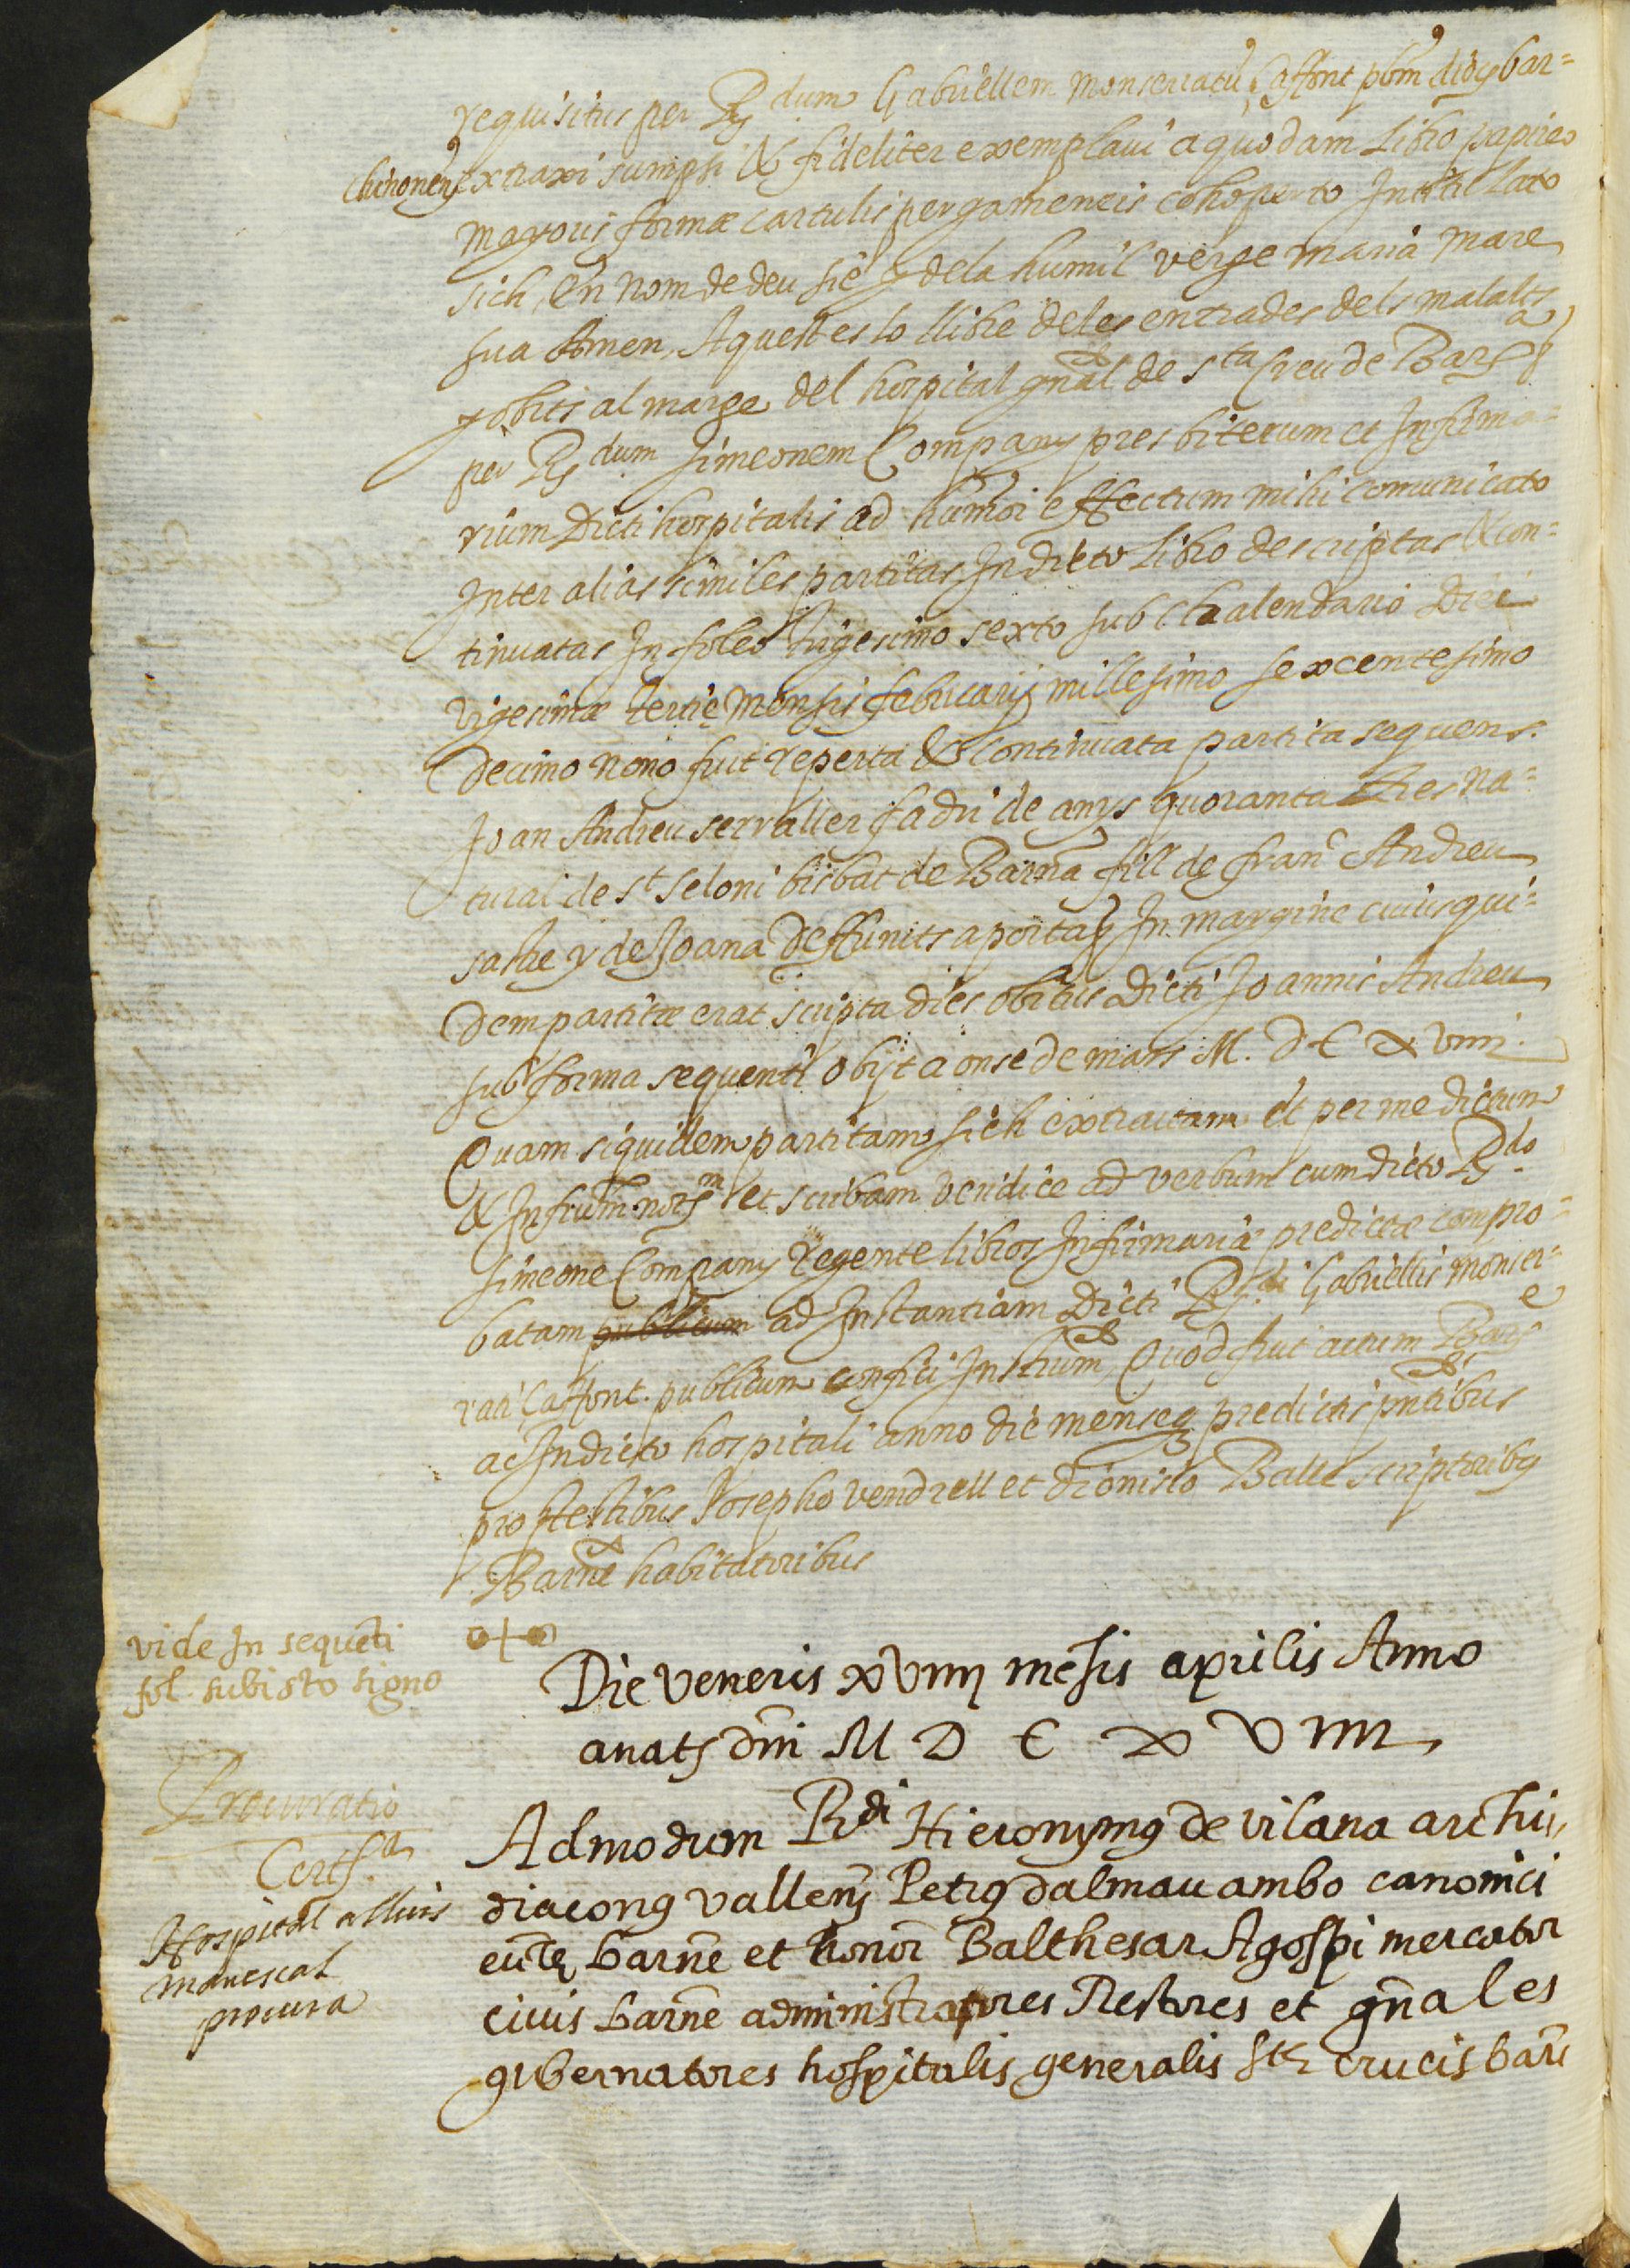 requisitus per Rdum Gabrielem Monserratũ Caffont pbrm diocs bar=
chinonens extraxi sumpsi & fideliter exemplavi a quodam Libro papireo
mayoris formæ cartulis pergameneis cohoperto Intitulato
sich, En nom de deu sie y dela humil verge maria mare
sua Amen, Aquest es lo llibre deles entrades dels malalts
y obits al marge del hospital gñal de sta Creu de Barsa
per Rdum Simeonem Company presbiterum et Infirma=
rium Dicti hospitalis ad humõi effectum mihi comunicato
Inter alias similes partitas In dicto Libro descriptas & con=
tinuatas In foleo vigesimo sexto sub chalendario Diei
vigesimæ tertię mensis februarij millesimo sexcentesimo
Decimo nono fuit reperta & continuata partita sequens.
Joan Andreu serraller fadri de anys quoranta tres na=
tural de st Seloni bisbat de Barña fill de franc Andreu
sastre y de Joana deffunits aportaq In margine cuiusqui=
dem partitæ erat scripta dies obitus Dicti Joannis Andreu
sub forma sequenti obijt a onse de mars M. D C X Viiii.
Quam siquidem partitam sich extractam et per me dictum
& Infrũm nors et scribam veridice ad verbum cum dicto Rdo
Simeone Company Regente libros Infirmariæ predictæ compro=
batam publicum ad Instantiam Dicti Rdi Gabrielis monser=
rati Caffont. publicum confici Instrum, Quod fuit actum Bars
ac In dicto hospitali anno die menseq predictis pñtibus
pro testibus Josepho vendrell et Dionisio Balle scriptoribq
Barñe habitatoribus
vide In sequẽti
fol. sub isto signo
Die veneris xviiij mẽsis aprilis Anno
anats dñi M D C X V IIII
Procuratio
Certf.a
Hospital a lluis
manescal
procura
Admodum Rdi Hieronymq de vilana archi,,
diaconq vallens Petrq dalmau ambo canonici
eũtę barñe et honor Balthesar Agospi mercator
civis barñe administratores Rectores et gñales
gubernatores hospitalis generalis stę crucis barñ